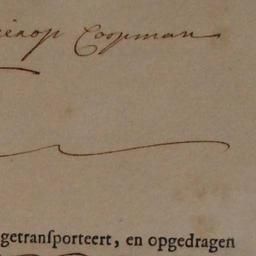 Coopman
getransporteert, en opgedragen